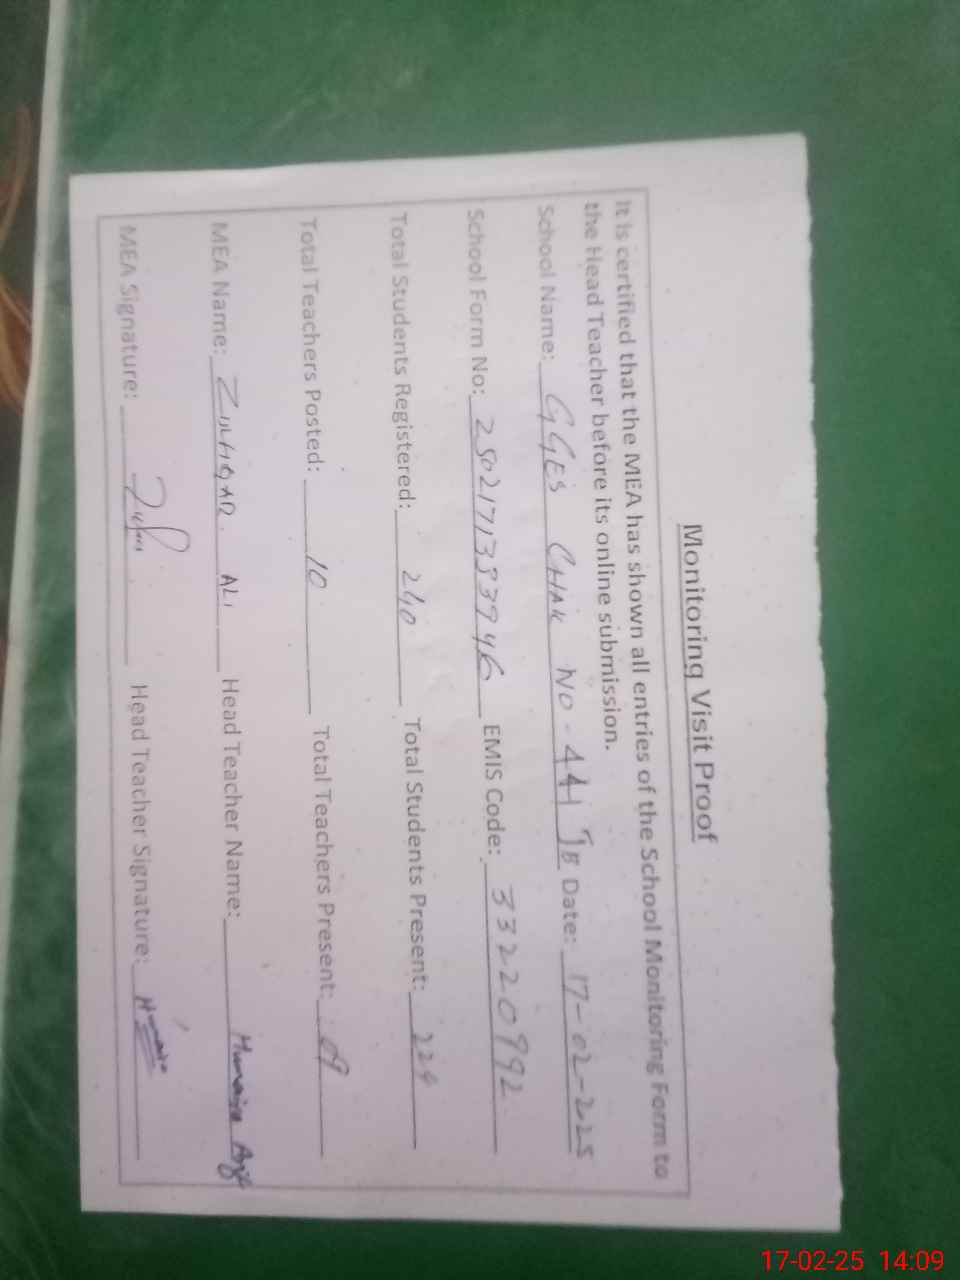 Monitoring Visit Proof
It is certified that the MEA has shown all entries of the School Monitoring Form to
the Head Teacher before its online submission.
School Name: GGES CHAK NO-441 JB Date: 17-02-2025
School Form No: EMIS Code: 33220992
Total Students Registered: 240 Total Students Present: 224
Total Teachers Posted: 10 Total Teachers Present: 09
MEA Name: ZULFIQAR ALI Head Teacher Name: Humaira
MEA Signature: Head Teacher Signature:
17-02-25 14:09